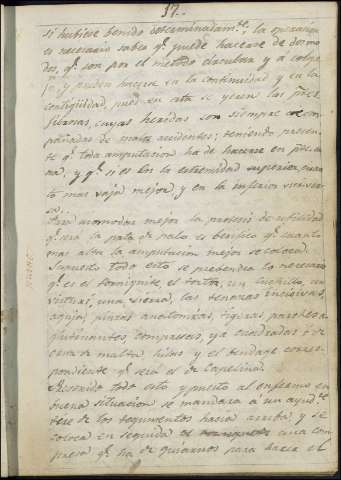 37..
si hubiese tenido descaminadam.te; la operación
es necesario saber q.e puede hacerse de dos mo-
dos, q.e son por el metodo circular y a colga-
jo, y pueden hacerse en la continuidad y en la
contigüidad, pues en esta se yeren las
cuyas heridas son siempre acom-
pañadas de malos accidentes; teniendo presen-
te q.e toda amputacion ha de hacerse en parte sa-
na, y q.e si es en la extremidad superior, cuan-
to mas vaja mejor, y en la inferior vicever-
sa.
Para acomodar mejor la protesis de utilidad
q.e será la pata de palo es benefico q.e cuanto
mas alta la amputacion mejor se coloca.
Supuesto todo esto se prevendra lo necesario
q.e es el torniquete, el un cuchillo, un
visturí, una sierra, las tenazas incisivas,
agujas, pinzas anatomicas, tigeras, parches a-
glutinantes, compresas, ya cuadradas ó de
cruz de malta, hilas y el bendage corres-
pondiente q.e será el de Capelina.
todo esto y puesto al enfermo en
buena situacion se mandara á un ayud.te
tire de los tegumentos hacia arriba, y se
coloca en seguida una com-
presa q.e ha de guiarnos para hacer el